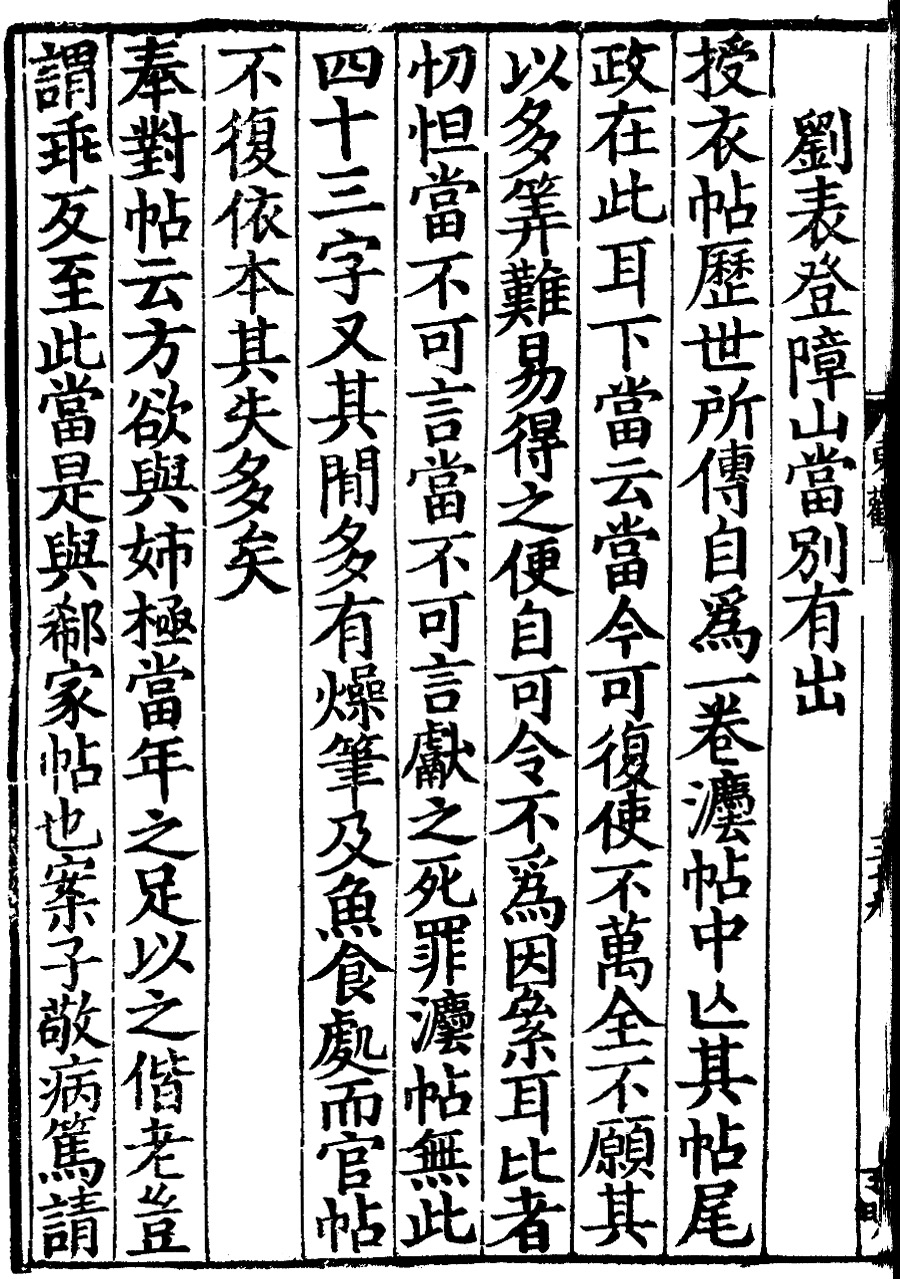 劉表登障山當別有出
授衣帖歷世所傳自爲一卷灋帖中亾其帖尾
政在此耳下當云當今可復使不萬全不願其
以多筭難易得之便自可令不爲因絫耳比者
忉怛當不可言當不可言獻之死罪灋帖無此
四十三字又其閒多有燥筆及魚食處而官帖
不復依本其失多矣
奉對帖云方欲與姉極當年之足以之偕老豈
謂乖及至此當是與郗家帖也案子敬病篤請